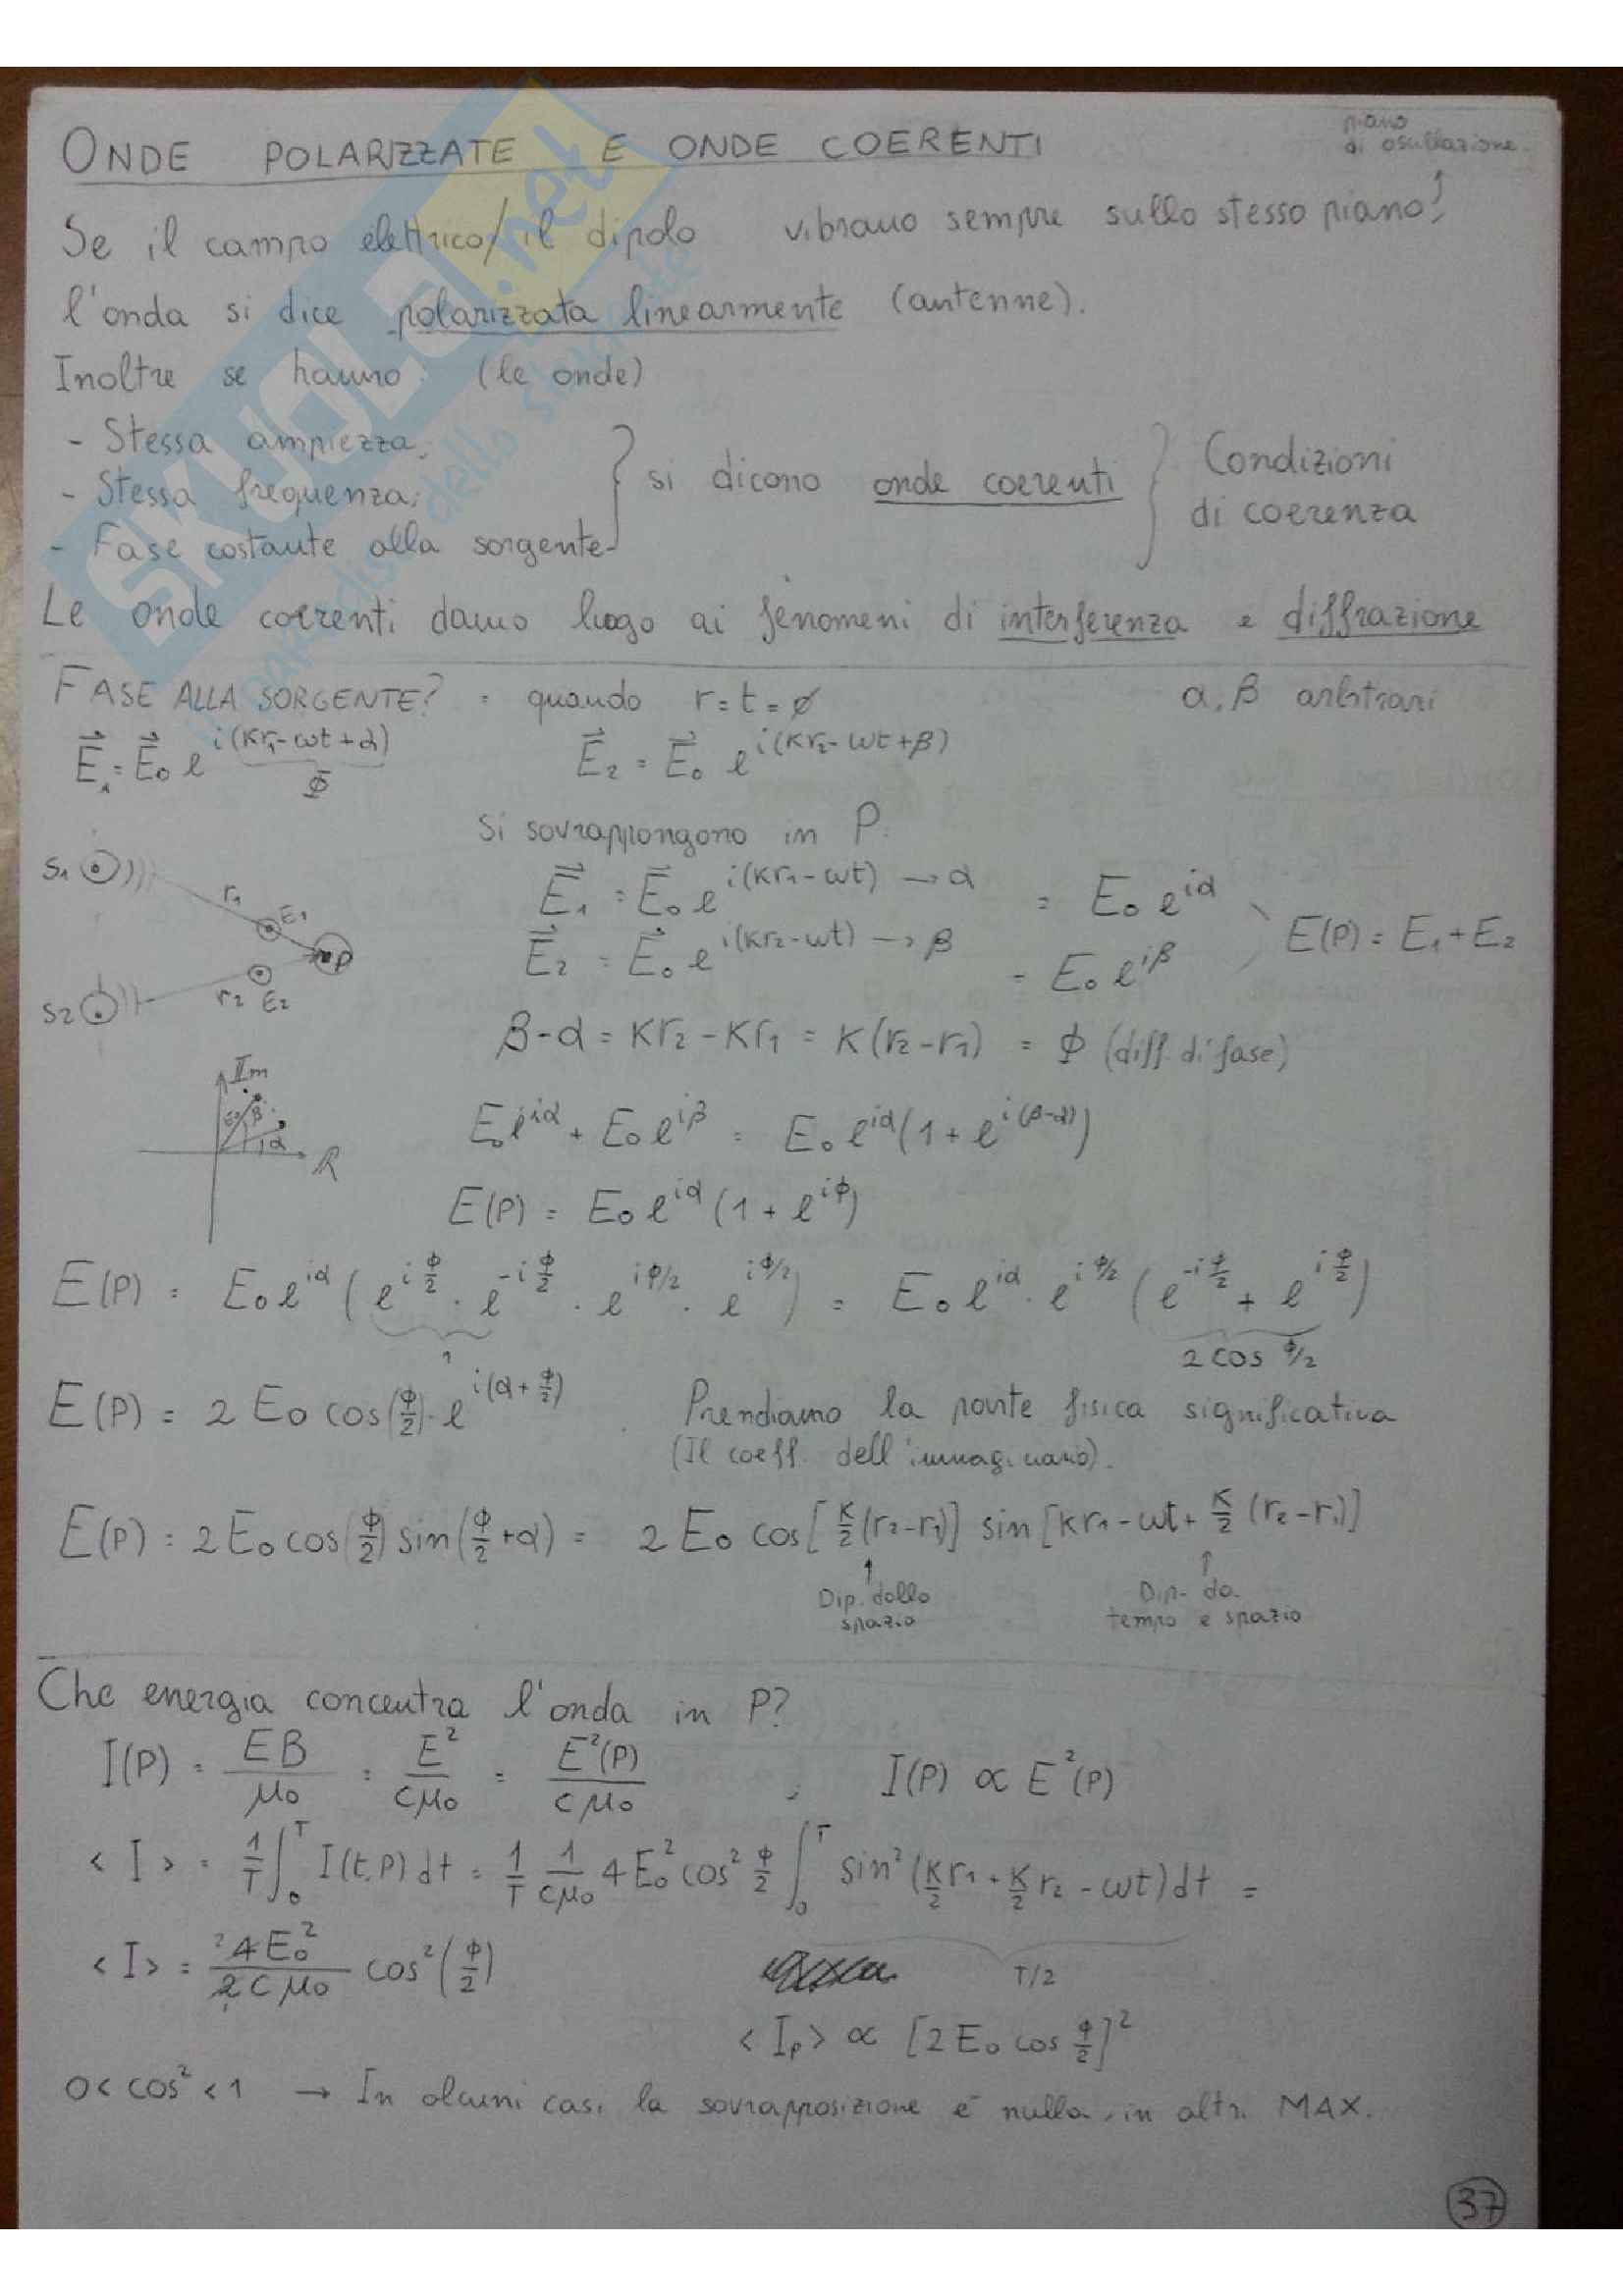 ONDE POLARIZZATE E ONDE COERENTI
piano
di oscillazione.
Se il campo elettrico/il dipolo vibrano sempre sullo stesso piano,
l'onda si dice polarizzata linearmente (antenne).
Inoltre se hanno (le onde)
- Stessa ampiezza;
- Stessa frequenza;
- Fase costante alla sorgente
} si dicono onde coerenti } Condizioni
di coerenza
Le onde coerenti danno luogo ai fenomeni di interferenza e diffrazione
FASE ALLA SORGENTE? = quando r=t=ø α,β arbitrari
E⃗₁ = E⃗₀ e^{i(kr₁-ωt+α)} E⃗₂ = E⃗₀ e^{i(kr₂-ωt+β)}
Φ
Si sovrappongono in P.
S1 r₁ E1 P
S2 r₂ E2
E⃗₁ = E⃗₀ e^{i(kr₁-ωt)} → α = E₀ e^{iα}
E⃗₂ = E⃗₀ e^{i(kr₂-ωt)} → β = E₀ e^{iβ}
E(P) = E₁+E₂
β-α = kr₂-kr₁ = k(r₂-r₁) = Φ (diff. di fase)
Im
E₀ β
α R
E₀e^{iα} + E₀e^{iβ} = E₀e^{iα}(1+e^{i(β-α)})
E(P) = E₀e^{iα}(1+e^{iϕ})
E(P) = E₀e^{iα}(e^{iϕ/2} · e^{-iϕ/2} · e^{iϕ/2} · e^{iϕ/2}) = E₀e^{iα} · e^{iϕ/2}(e^{-iϕ/2} + e^{iϕ/2})
1 2cos ϕ/2
E(P) = 2E₀cos(ϕ/2) · e^{i(α+ϕ/2)} Prendiamo la parte fisica significativa
(Il coeff. dell'immaginario).
E(P) = 2E₀cos(ϕ/2)sin(ϕ/2+α) = 2E₀ cos[k/2(r₂-r₁)] sin[kr₁-ωt+k/2(r₂-r₁)]
↑ ↑
Dip. dallo Dip. da
spazio tempo e spazio
Che energia concentra l'onda in P?
I(P) = EB/μ₀ = E²/cμ₀ = E²(P)/cμ₀ , I(P) ∝ E²(P)
<I> = 1/T ∫₀ᵀ I(t,P)dt = 1/T 1/cμ₀ 4E₀²cos² ϕ/2 ∫₀ᵀ sin²(k/2 r₁+k/2 r₂-ωt)dt =
<I> = ²4E₀²/2cμ₀ cos²(ϕ/2) T/2
<Iₚ> ∝ [2E₀ cos ϕ/2]²
0<cos²<1 → In alcuni casi la sovrapposizione è nulla, in altri MAX.
37
SKUOLA.net